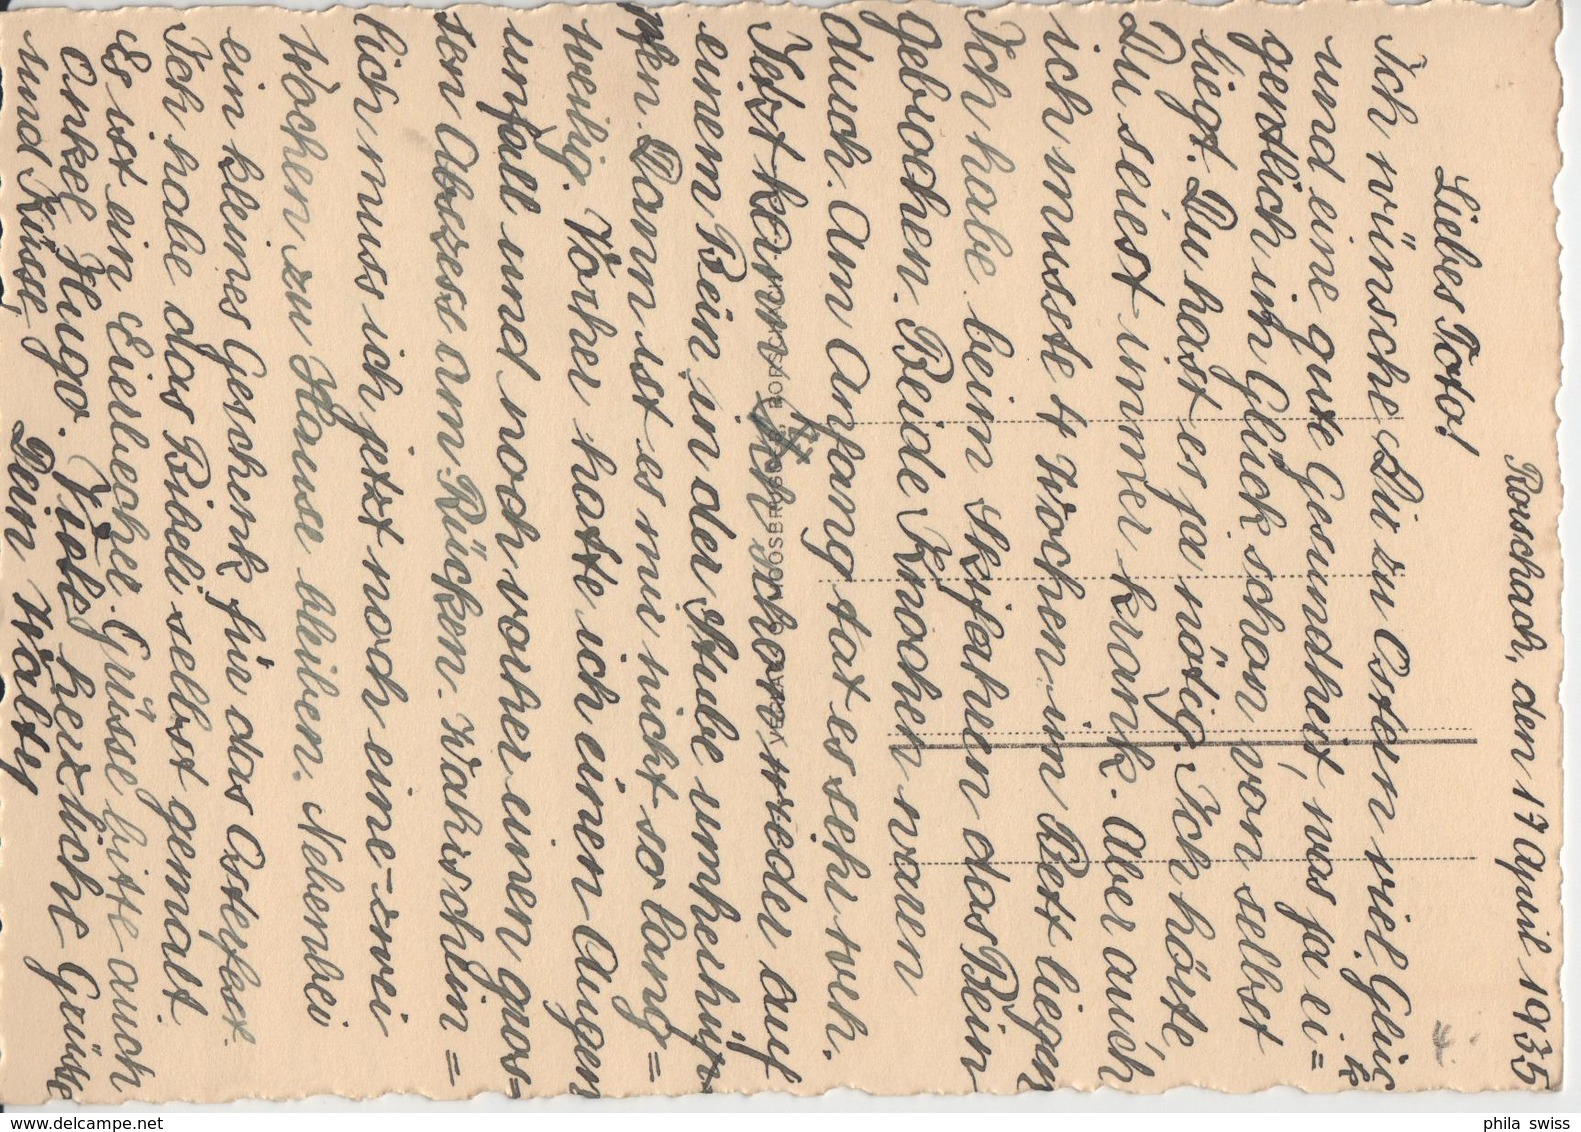 Rorschach, den 17 April 1935
Liebes Toto!
Ich wünsche Dir zu Ostern viel Glück
und eine gute Gesundheit, was ja ei=
gentlich im Glück schon von selbst
liegt. Du hast es ja nötig. Ich hörte,
Du seiest immer krank. Aber auch
ich musste 4 Wochen im Bett liegen
Ich habe beim Skifahren das Bein
gebrochen. Beide Knochen waren
durch. Am Anfang tat es sehr weh.
Jetzt kann ich schon wieder auf
einem Bein in der Stube umherhüp=
fen. Dann ist es mir nicht so lang=
weilig. Vorher hatte ich einen Augen
unfall und noch vorher einen gros=
sen Abszess am Rücken. Wahrschein=
lich muss ich jetzt noch eine-zwei
Wochen zu Hause bleiben. Nebenbei
ein kleines Geschenk für das Osterfest.
Ich habe das Bibeli selbst gemalt
Es ist ein Eierbecher. Grüsse bitte auch
Onkel Hugo. Viele herzliche Grüsse
und Küsse, Dein Walter
4.
phila swiss